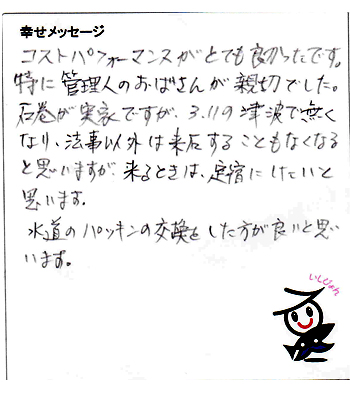 幸せメッセージ
コストパフォーマンスがとても良かったです。
特に管理人のおばさんが親切でした。
石巻が実家ですが、3.11の津波で無く
なり、法事以外は来石することもなくなる
と思いますが、来るときは、定宿にしたいと
思います。
水道のパッキンの交換をした方が良いと思い
います。
いしぴょん